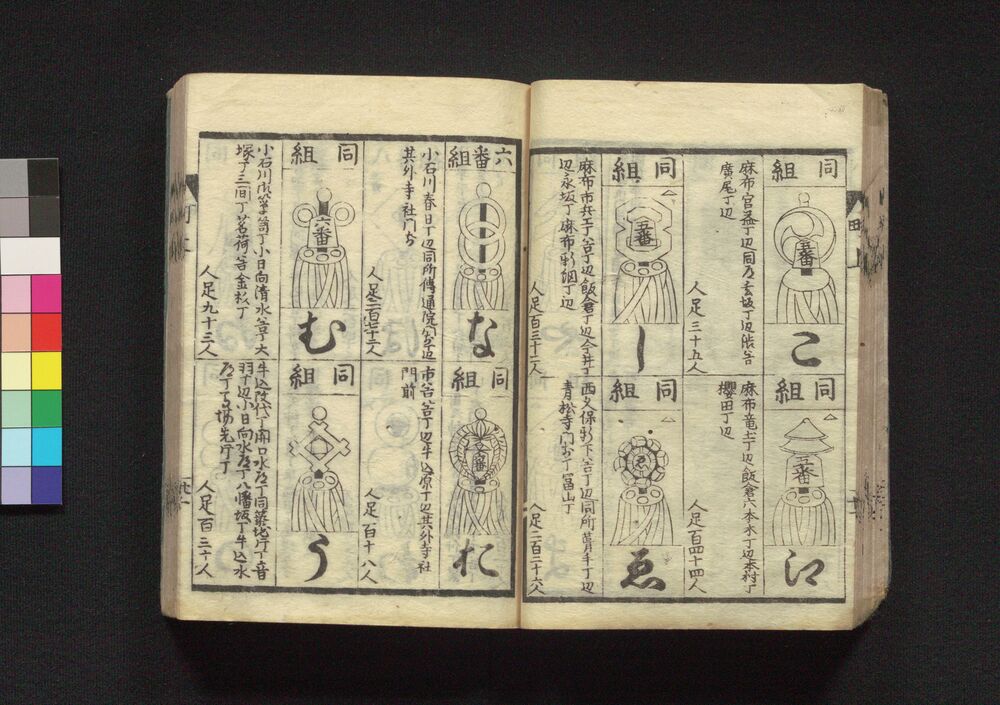 同組
五番
こ
麻布宮益丁辺同乃玄坂丁辺渋谷
廣尾丁辺
人足三十五人
同組
五番
江
麻布竜土丁辺飯倉六本木丁辺本村丁
櫻田丁辺
人足百四十四人
同組
五番
し
麻布市兵エ丁谷丁辺飯倉丁辺今井丁
辺永坂丁麻布新網丁辺
人足百三十二人
同組
ゑ
西久保新下谷丁辺同所
青松寺門前丁富山丁
人足二百二十六人
六番組
な
小石川春日丁辺同所傳通院前辺
其外寺社門前
同組
六番
お
市谷谷丁辺牛込原丁辺其外寺社
門前
人足百十八人
同組
六番
む
小石川小日向清水谷丁大
塚丁三間丁茗荷谷金杉丁
人足九十三人
同組
う
牛込改代丁関口水道丁同築地片丁音
羽丁辺小日向水道丁八幡坂丁牛込水
道丁馬場先片丁
人足百三十人